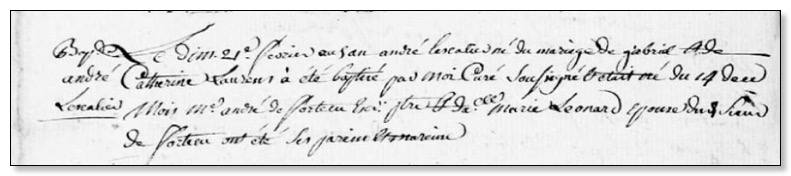 Bap. de Le dim. 21e. fevrier au san andré Lescalier né du mariage de gabriel & de
andré Catherine Laurens à été baptisé par moi Curé soussigné & etait né du 14 dece
Lescalier mois Mr. andré de
Marie Leonard epouse du Sieur
de ont été ses parein & mareine